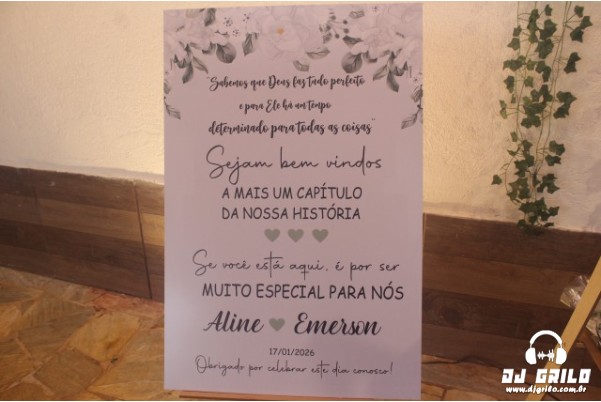 "Sabemos que Deus faz tudo perfeito
e para Ele há um tempo
determinado para todas as coisas"
Sejam bem vindos
A MAIS UM CAPÍTULO
DA NOSSA HISTÓRIA
Se você está aqui, é por ser
MUITO ESPECIAL PARA NÓS
Aline Emerson
17/01/2026
Obrigado por celebrar este dia conosco!
DJ GRILO
www.djgrilo.com.br